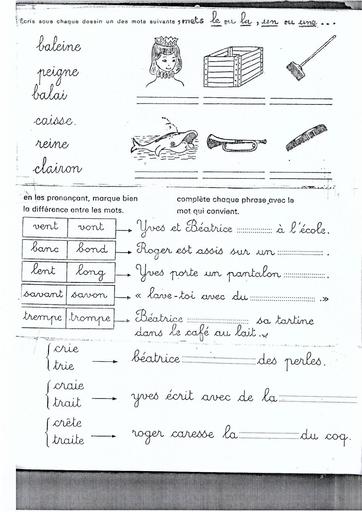 écris sous chaque dessin un des mots suivants, mets le ou la, un ou une...
baleine
peigne
balai
caisse.
reine
clairon
en les prononçant, marque bien
la différence entre les mots.
complète chaque phrase avec le
mot qui convient.
vent vont Yves et Béatrice ............ à l'école.
banc bond Roger est assis sur un ............ .
lent long Yves porte un pantalon ............ .
savant savon « lave-toi avec du ............ .»
trempe trompe Béatrice ............ sa tartine
dans le café au lait..
crie
trie
béatrice ............ des perles.
craie
trait
yves écrit avec de la ............
crête
traite
roger caresse la ............ du coq.